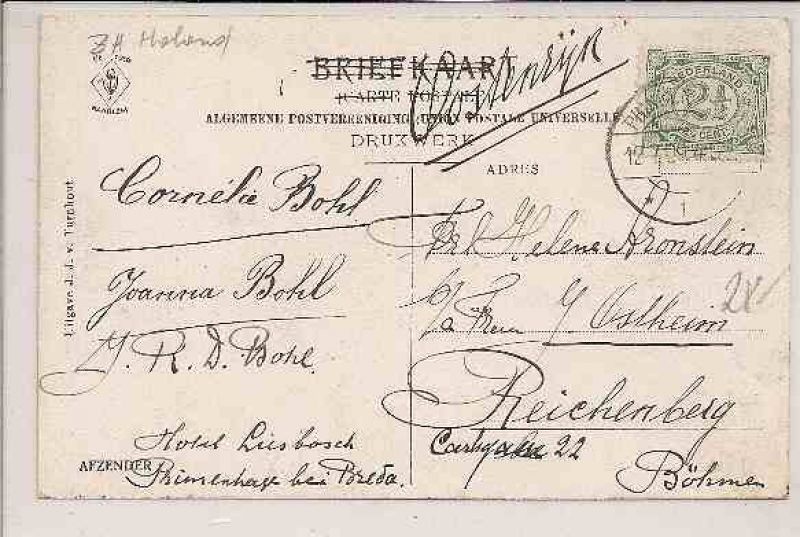 ZH Holand
HAARLEM
BRIEFKAART
CARTE POSTALE
Oostenrijk
ALGEMEENE POSTVEREENIGING (UNION POSTALE UNIVERSELLE)
DRUKWERK
NEDERLAND
2½
CENT
12
1
ADRES
Uitgave J. J. v. Turnhout
Cornélie Bohl
Joanna Bohl
J. R. D. Bohl.
Hotel Liesbosch
AFZENDER
Prinsenhage bei Breda.
Frl Helene Aronstein
J. Ostheim
Reichenberg
22
Böhmen